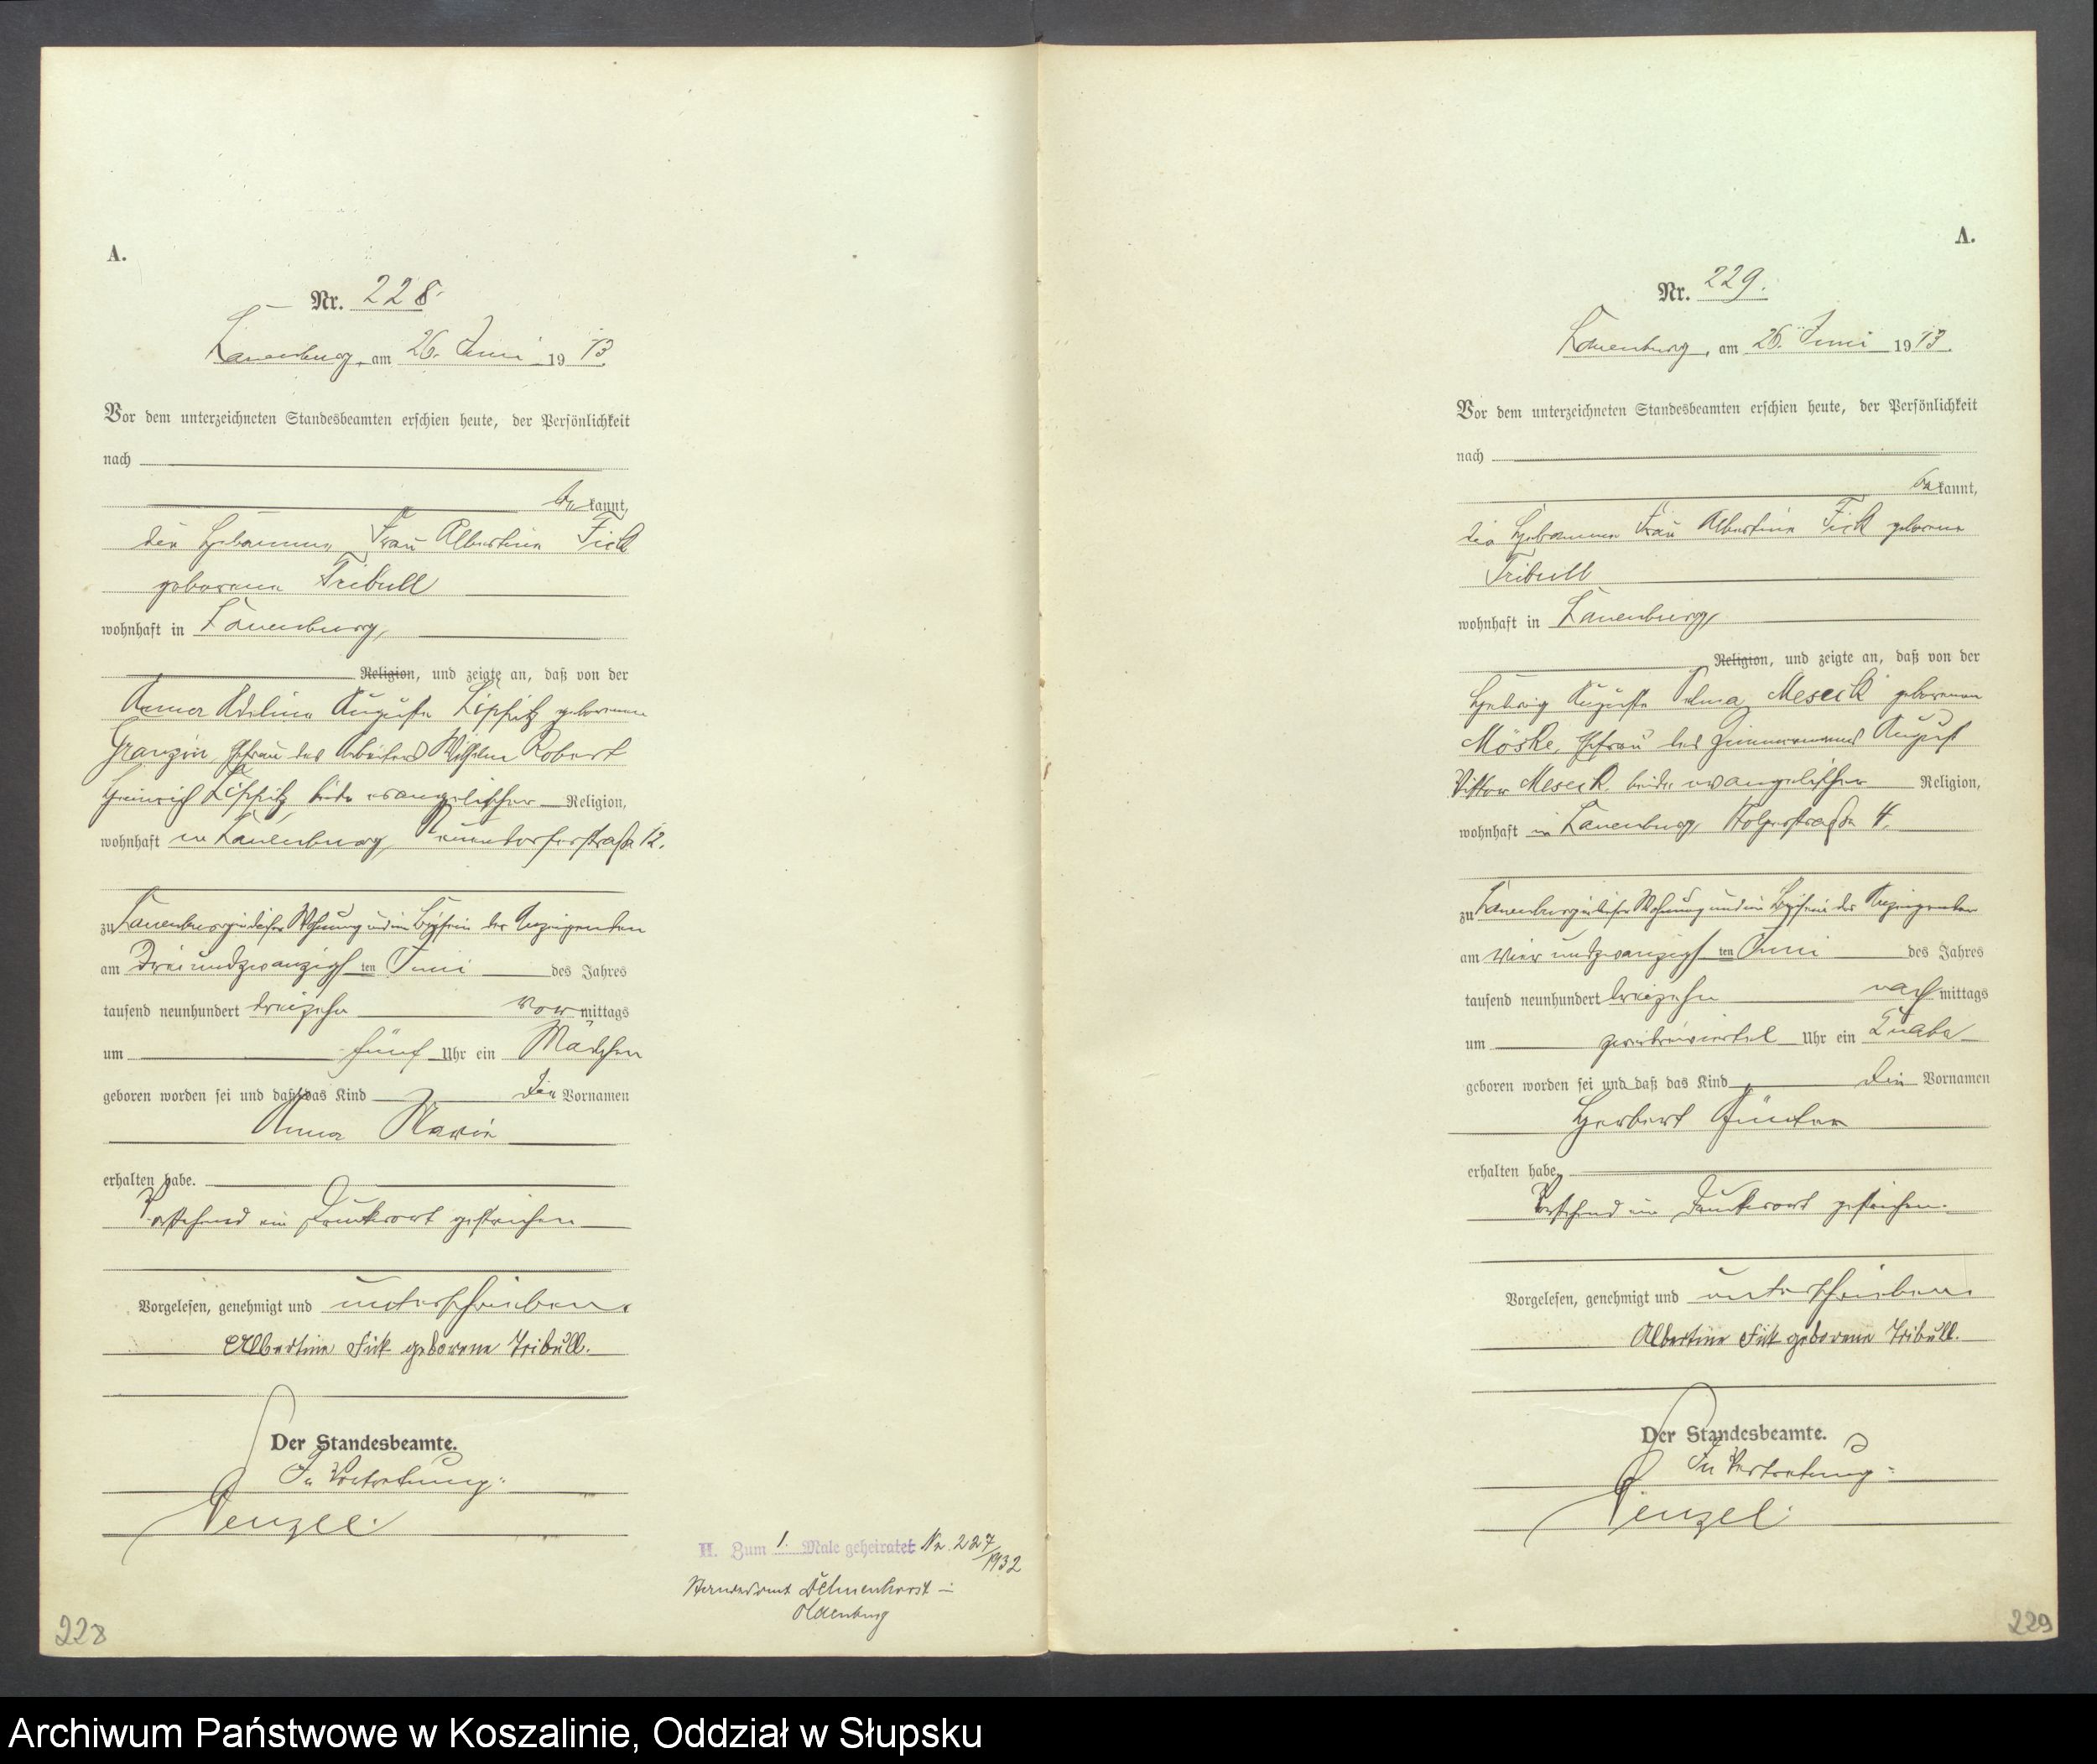 A.
Nr. 228.
Lauenburg, am 26. Juni 1913
Vor dem unterzeichneten Standesbeamten erschien heute, der Persönlichkeit
nach
be kannt,
die Hebamme, Frau Albertine Fick
geborene Tribull
wohnhaft in Lauenburg,
Religion, und zeigte an, daß von der
Anna Adeline Auguste Lipfitz geborenen
Granzin, Ehefrau des Arbeiters Wilhelm Robert
Heinrich Lipfitz beide evangelischer Religion,
wohnhaft in Lauenburg, Neuendorferstraße 12.
zu Lauenburg in dieser Wohnung und im Beisein der Anzeigenden
am Dreiundzwanzigsten Juni des Jahres
tausend neunhundert dreizehn vormittags
um fünf Uhr ein Mädchen
geboren worden sei und daß das Kind die Vornamen
Anna Marie
erhalten habe.
Vorstehend ein Druckwort gestrichen
Vorgelesen, genehmigt und unterschrieben.
Albertine Fick geborene Tribull.
Der Standesbeamte.
In Vertretung:
Penzel.
II. Zum 1. Male geheiratet Nr. 227/1932
Standesamt Delmenhorst -
Oldenburg
228
A.
Nr. 229.
Lauenburg, am 26. Juni 1913.
Vor dem unterzeichneten Standesbeamten erschien heute, der Persönlichkeit
nach
be kannt,
die Hebamme Frau Albertine Fick geborene
Tribull
wohnhaft in Lauenburg,
Religion, und zeigte an, daß von der
Hedwig Auguste Selma Meseck geborenen
Möske, Ehefrau des Zimmermanns August
Viktor Meseck beide evangelischer Religion,
wohnhaft in Lauenburg, Stolperstraße 4.
zu Lauenburg in dieser Wohnung und im Beisein der Anzeigenden
am vierundzwanzigsten Juni des Jahres
tausend neunhundert dreizehn nachmittags
um zweidreiviertel Uhr ein Knabe
geboren worden sei und daß das Kind die Vornamen
Herbert Günter
erhalten habe.
Vorstehend ein Druckwort gestrichen.
Vorgelesen, genehmigt und unterschrieben.
Albertine Fick geborene Tribull.
Der Standesbeamte.
In Vertretung:
Penzel.
229
Archiwum Państwowe w Koszalinie, Oddział w Słupsku